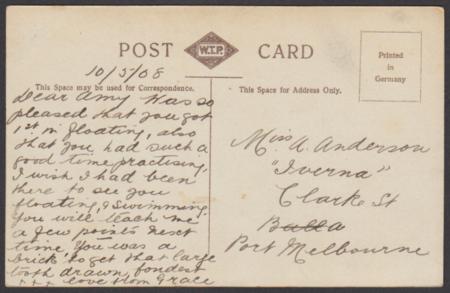 POST W.T.P. CARD
Printed
in
Germany
This Space may be used for Correspondence.
This Space for Address Only.
10/5/08
Dear Amy Was so
pleased that you got
1st in floating, also
that you had such a
good time practising,
I wish I had been
there to see you
floating, & swimming
You will teach me
a few points next
time. You was a
brick to get that large
tooth drawn, fondest
love from Grace
Miss A. Anderson
"Iverna"
Clarke St
Port Melbourne